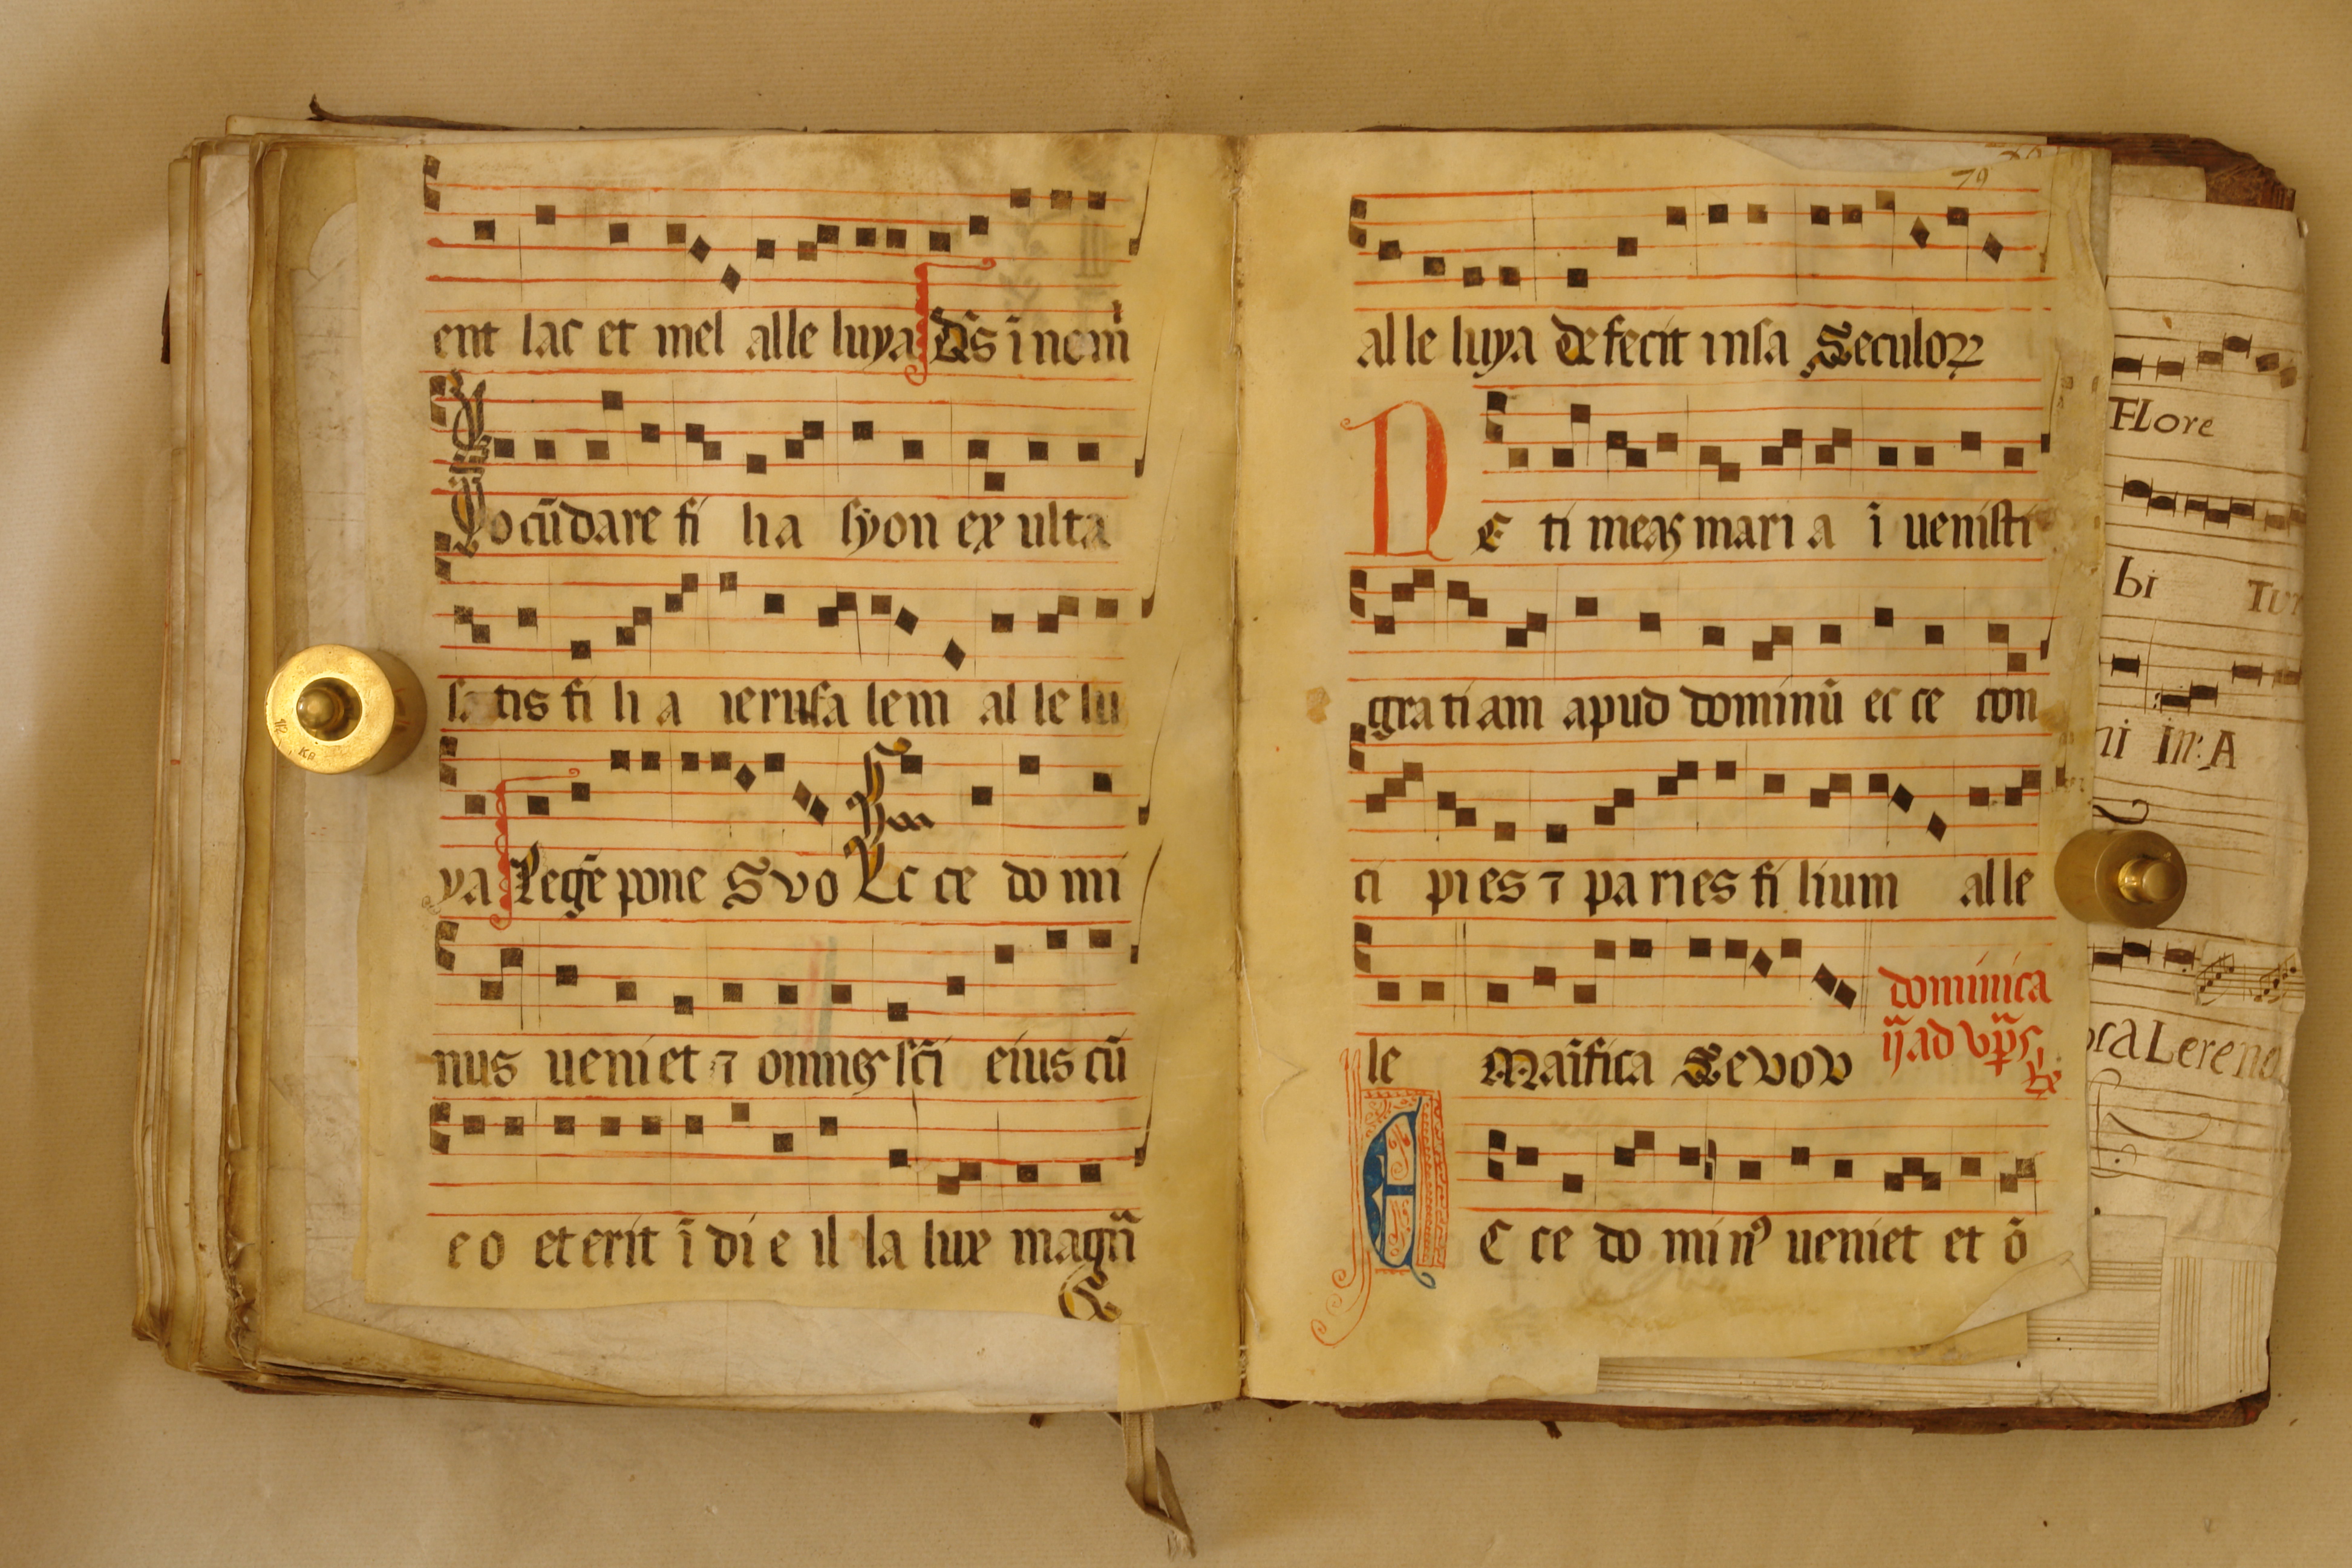 ent lac et mel alle luya Ds̄ ī nom̄
Iocūdare fi lia syon ex ulta
tis fi li a ierusa lem al le lu
ya Legē pone Svo Ec ce do mi
nus ueniet ⁊ omneꝫ sc̄i eius cū
e o et erit ī di e il la lux magn̄a
79
al le luya Defecit in sa Seculoꝝ
N E ti meaꝫ mari a ī uenisti
gra ti am apud dominū ec ce con
ci pi es ⁊ pa ri es fi lium al le
le Maīfica Sevov
dominica
ij ad vp̄s
E C ce do mi nꝰ ueniet et ō
FLore
bi Tur
ni in: A
ora Lereno